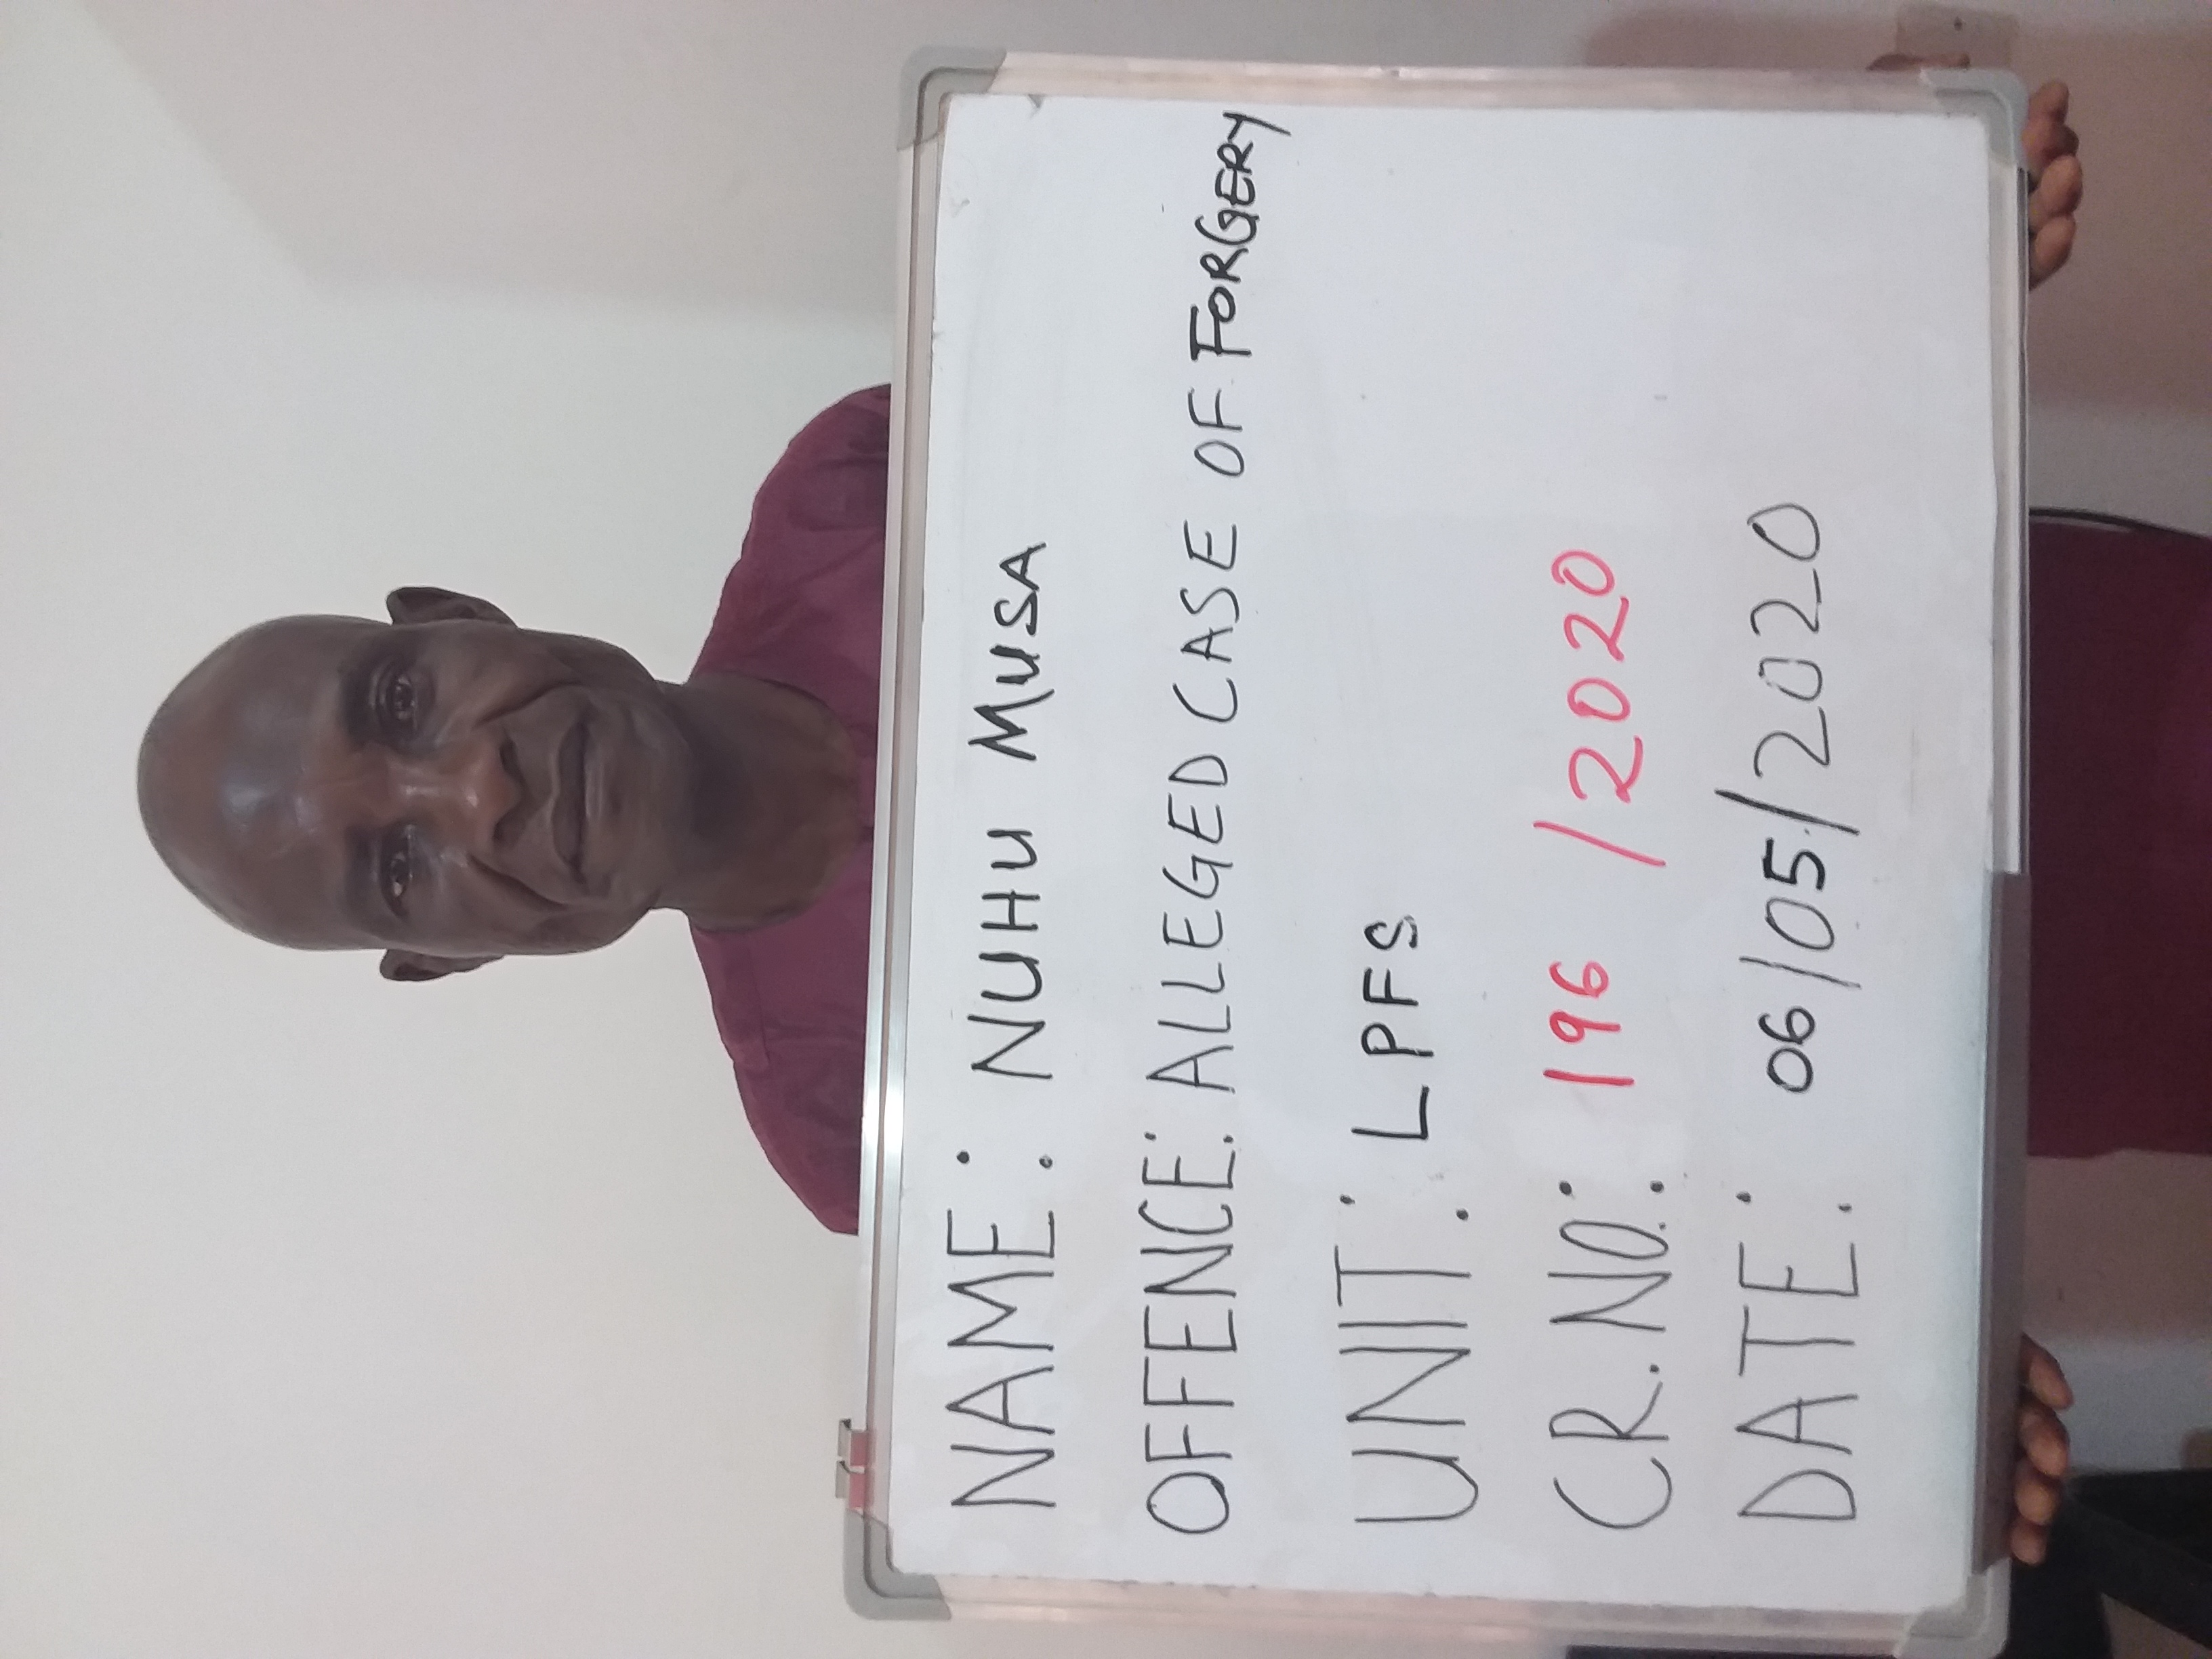 NAME: NUHU MUSA
OFFENCE: ALLEGED CASE OF FORGERY
UNIT: LPFS
CR. NO.: 196 /2020
DATE: 06/05/2020